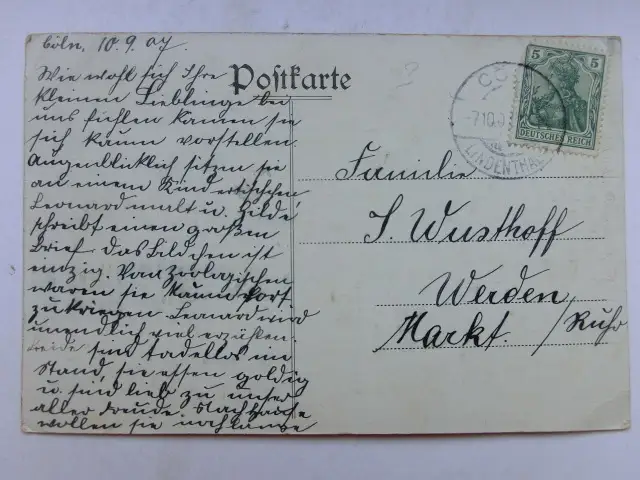 Cöln, 10.9.07.
Wie wohl sich Ihre
kleinen Lieblinge bei
uns fühlen können sie
sich kaum vorstellen.
Augenblicklich sitzen sie
an einem Kindertischchen
Leonard malt u. Hilde
schreibt einen großen
Brief. Das Bildchen ist
einzig. Vom zoologischen
waren sie kaum fort
zu kriegen Leonard wird
unendlich viel erzählen.
Beide sind tadellos im
Stand, sie essen goldig
u. sind lieb zu unser
aller Freude. Nach Hause
wollen sie noch lange
Postkarte
5 5
DEUTSCHES REICH
-7.10.0
LINDENTHAL
Familie
J. Wusthoff
Werden
Markt. / Ruhr